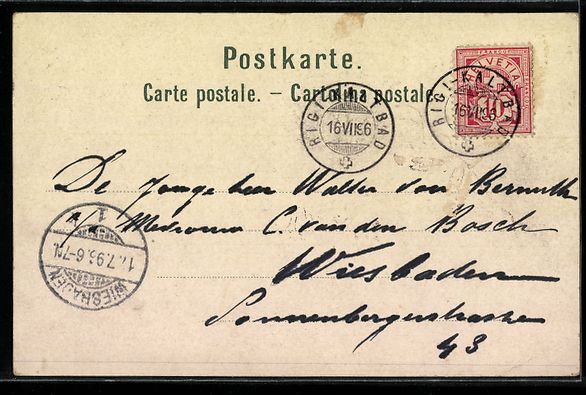 Postkarte.
Carte postale. – Cartolina postale.
FRANCO
HELVETIA
10
RIGI-KALTBAD
16 VII 96
RIGI-KALTBAD
16 VII 96
De Jonge heer Walter von Bernuth
a/ Mevrouw C. van den Bosch
Wiesbaden
Sonnenbergerstrasse
43
WIESBADEN
17.7.96.6-7N.
1